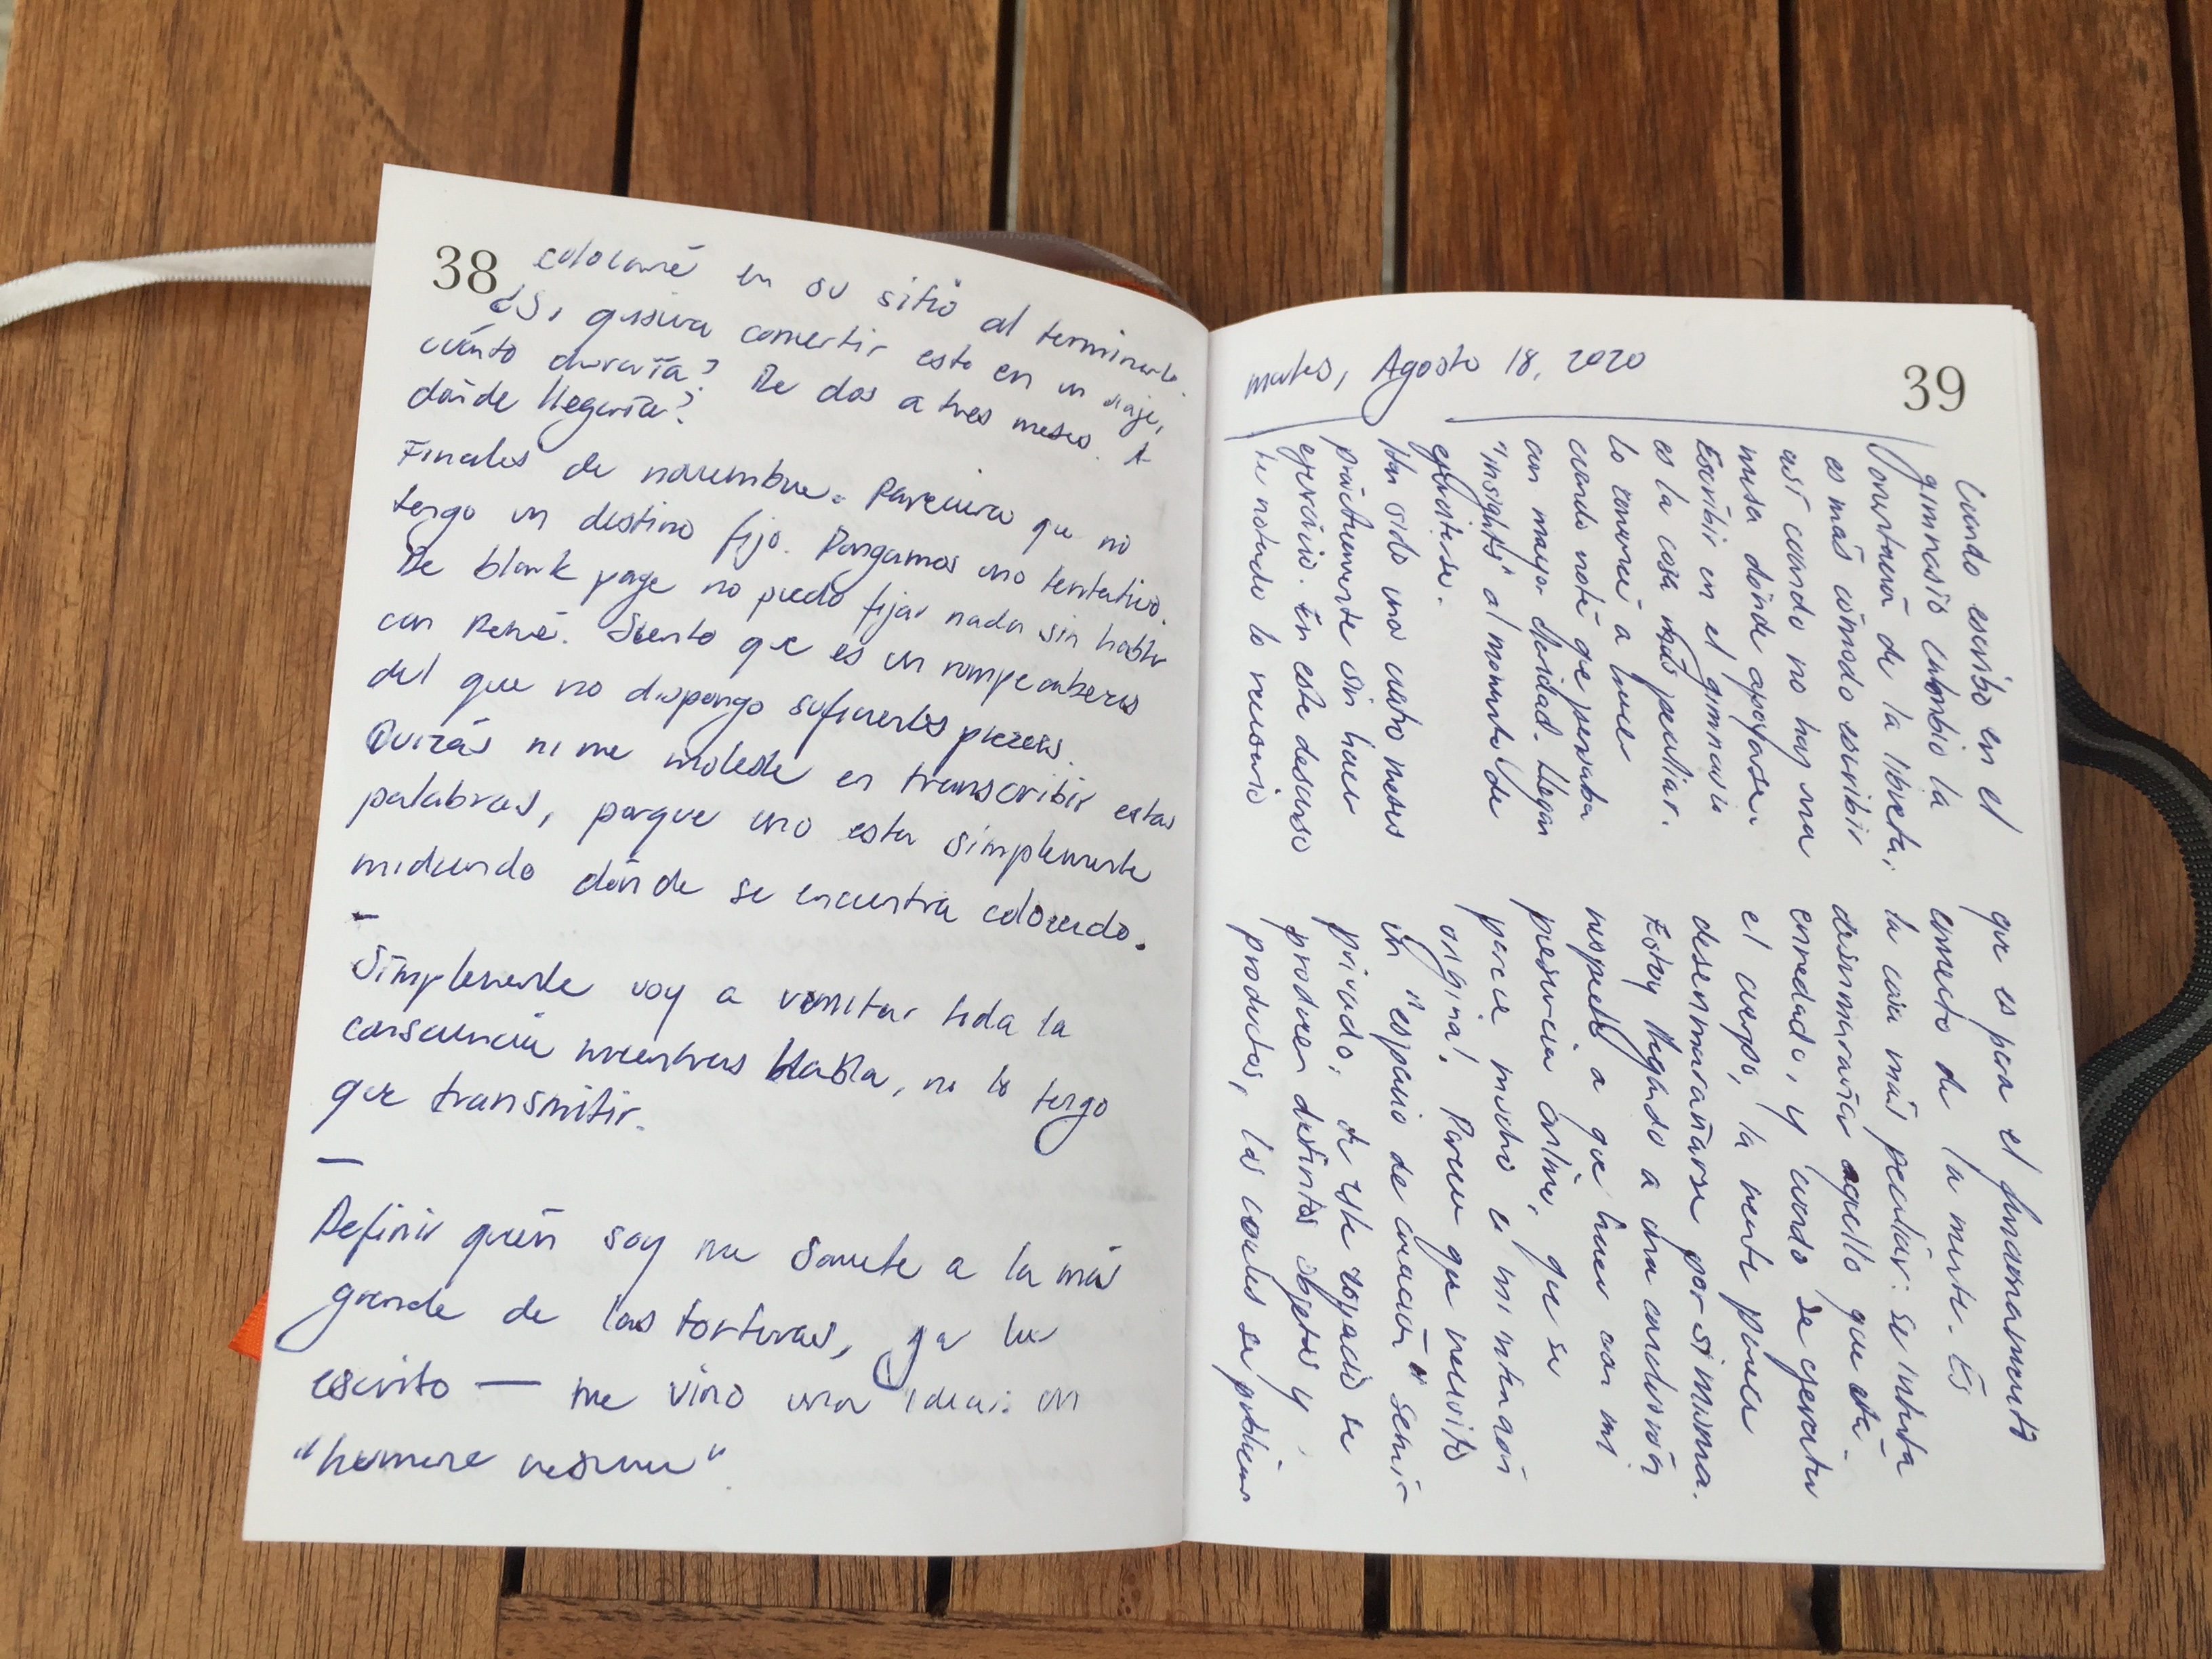 38
colocaré en su sitio al terminarlo.
¿Si quisiera convertir esto en un viaje,
cuánto duraría? De dos a tres meses. A
dónde llegaría?
Finales de noviembre. Pareciera que no
tengo un destino fijo. Pongamos uno tentativo.
De blank page no puedo fijar nada sin hablar
con René. Siento que es un rompecabezas
del que no dispongo suficientes piezas.
Quizás ni me moleste en transcribir estas
palabras, porque uno esta simplemente
midiendo dónde se encuentra colocado.
—
Simplemente voy a vomitar toda la
consciencia mientras habla, no lo tengo
que transmitir.
—
Definir quién soy me somete a la más
grande de las torturas, ya lo he
escrito — me vino una idea: un
39
martes, Agosto 18, 2020
Cuando escribo en el
gimnasio cambio la
postura de la libreta,
es más cómodo escribir
así cuando no hay una
mesa dónde apoyarse.
Escribir en el gimnasio
es la cosa más peculiar.
Lo comencé a hacer
cuando noté que pensaba
con mayor claridad. Llegan
"insights" al momento de
ejercitarse.
Han sido una cuatro meses
prácticamente sin hacer
ejercicio. En este descanso
he notado lo necesario
que es para el funcionamiento
correcto de la mente. Es
la cosa más peculiar: se intenta
desenmarañar aquello que está
enredado, y cuando se ejercita
el cuerpo, la mente parece
desenmarañarse por si misma.
Estoy llegando a una conclusión
respecto a que hacer con mi
presencia online, que se
parece mucho a mi intención
original. Parece que necesito
un "espacio de creación" semi-
privado, de este espacio se
producen distintos objetos y
productos, los cuales se publican